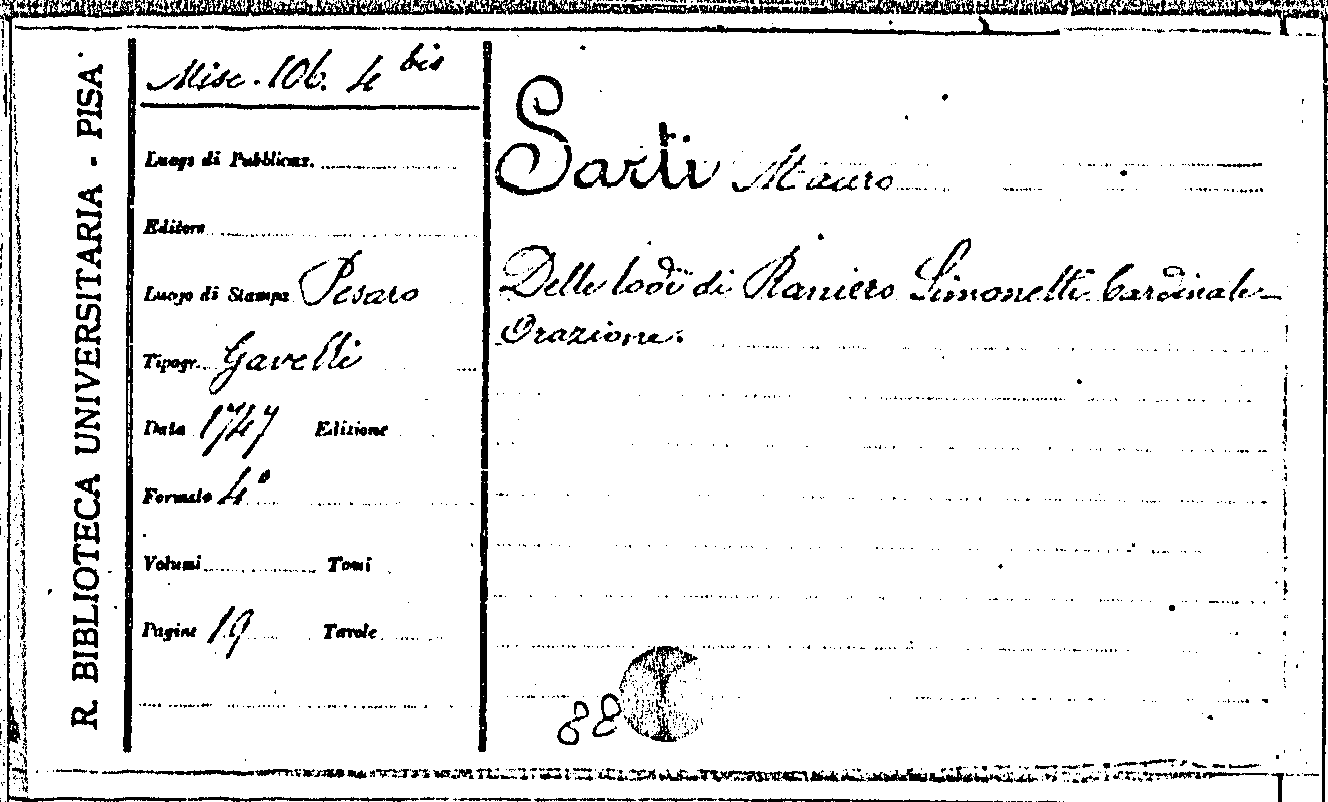 R. BIBLIOTECA UNIVERSITARIA - PISA
Misc. 106. 4 bis
Luogo di Pubblicaz.
Editore
Luogo di Stampa Pesaro
Tipogr. Gavelli
Data 1747 Edizione
Formato 4°
Volumi Tomi
Pagine 19 Tavole
Sarti Mauro
Delle lodi di Raniero Simonetti Cardinale
Orazione.
88